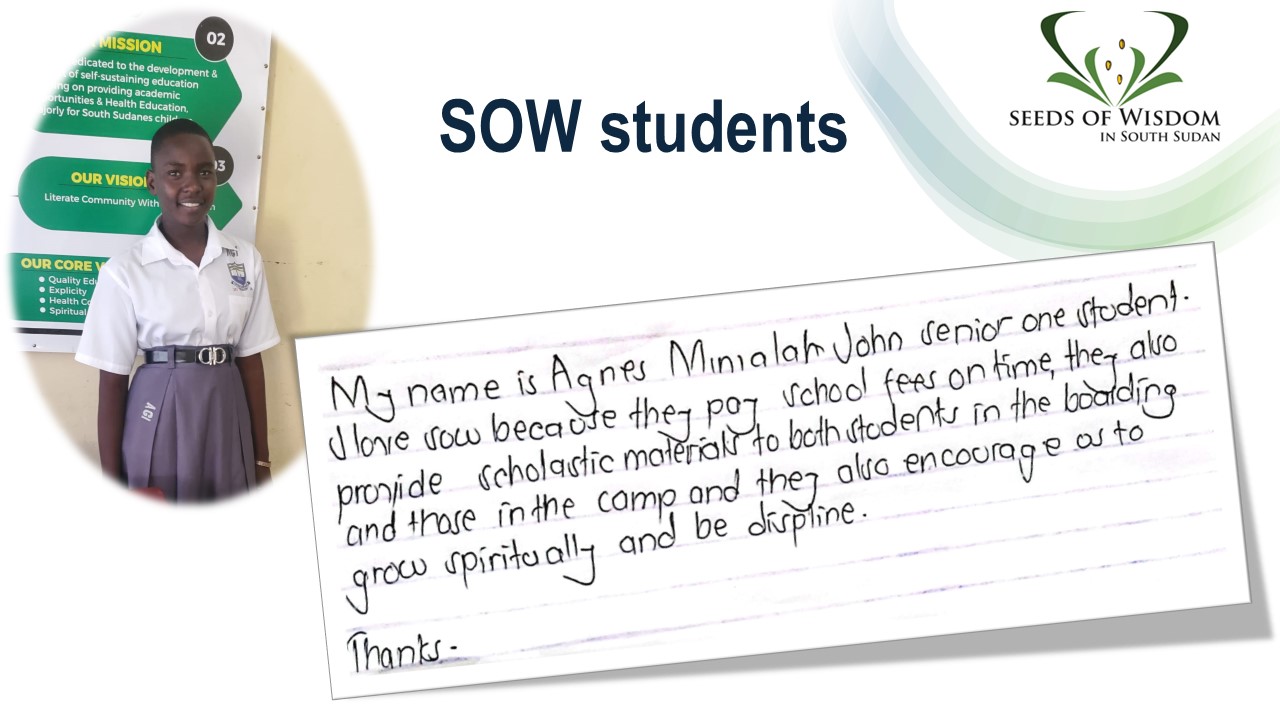 MISSION
02
edicated to the development &
of self-sustaining education
ng on providing academic
ortunities & Health Education,
jorly for South Sudanes child
03
OUR VISION
Literate Community With
OUR CORE V
Quality Edu
Explicity
Health Co
Spiritual
AGI
AGI
SOW students
SEEDS OF WISDOM
IN SOUTH SUDAN
My name is Agnes Minialah John senior one student.
I love sow because they pay school fees on time, they also
provide scholastic materials to both students in the boarding
and those in the camp and they also encourage us to
grow spiritually and be displine.
Thanks.